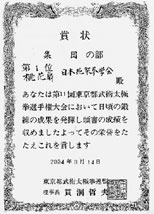 賞状
集団の部
第1位
日本北派拳学会
殿
あなたは第11回東京都武術太極
拳選手権大会において日頃の鍛
錬の成果を発揮し頭書の成績を
収めましたよってその栄誉をた
たえこれを賞します
2004年3月14日
東京都武術太極拳連盟
理事長